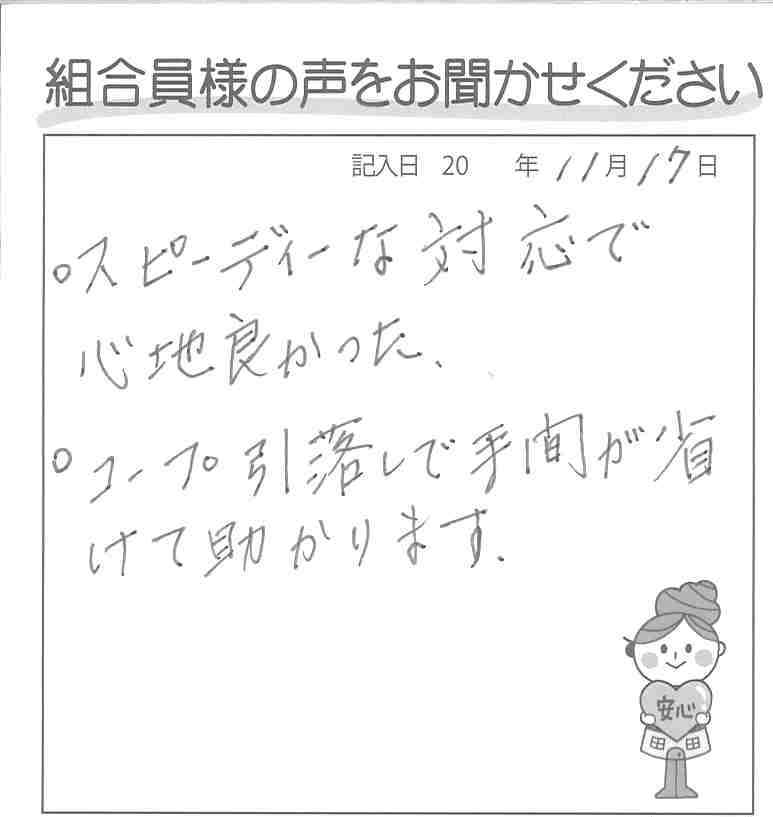 組合員様の声をお聞かせください
記入日 20 年 11月17日
○スピーディーな対応で
心地良かった、
○コープ引落しで手間が省
けて助かります.
安心